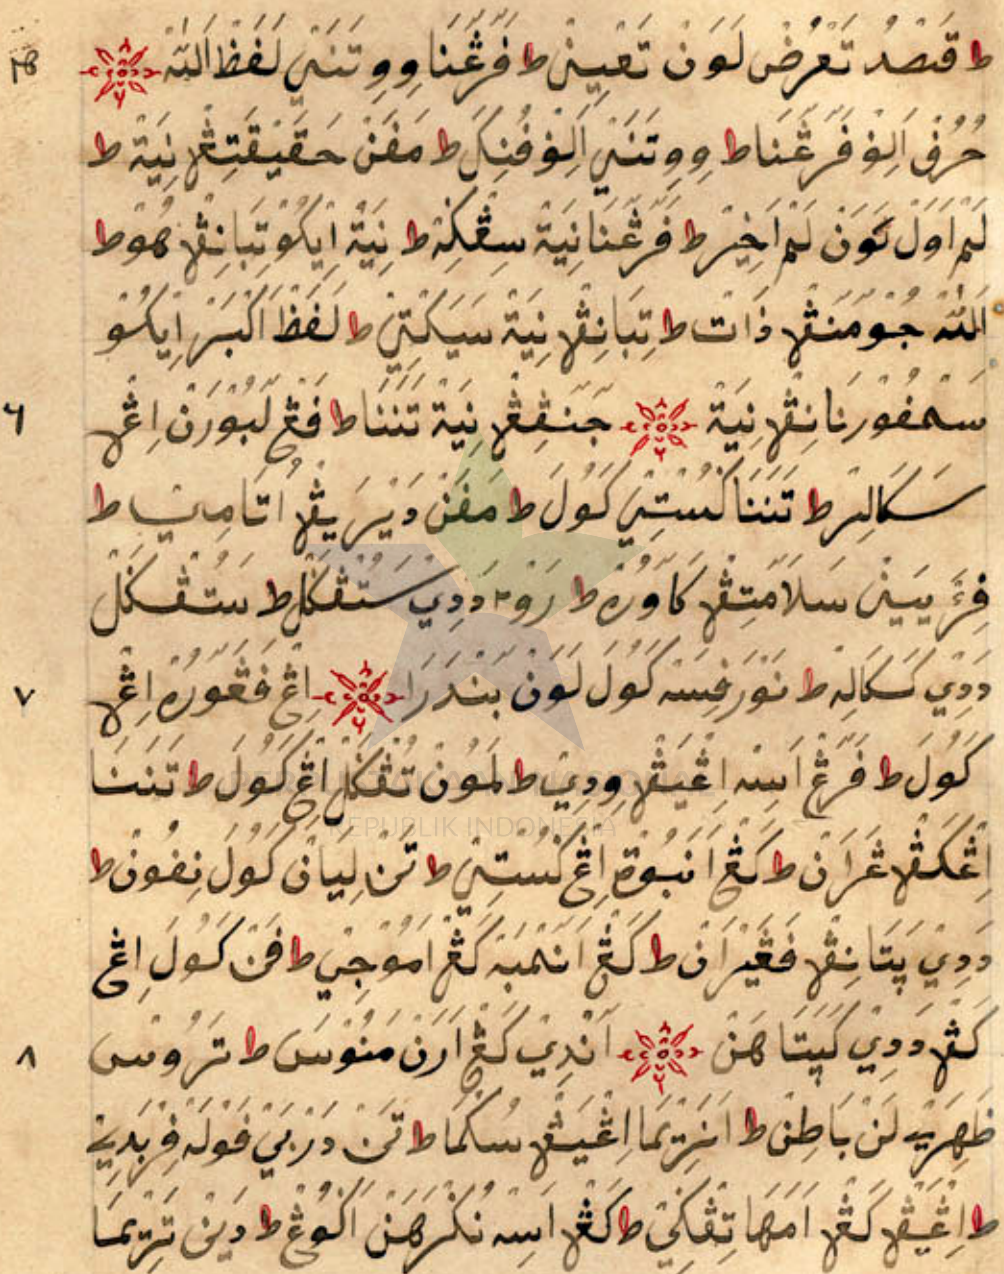 ط قصد تعرض لون تعيين ط فرڠنا ووتنني لفظ الله
حرف الف فرڠنا ط ووتنني الف فنكل ط مفن حقيقتڠ نية ط
لم اول تون لم اخير ط فرڠنا نية سڠكه ط نية ايكو تباننڤ هو ط
الله جومننڤ ذات ط تباننڤ نية سيكتي ط لفظ اكبر ايكو
سمفورنانڤ نية جنڤڠ نية تننا ط فڠلبورن اڠ
سكالير ط تننا كستي كول ط مفن ديريڤ اتامي ط
ڤريين سلامتڤ كاوره ط رو٢ ددي ستڠكل ط ستڠكل
٧ ددي سكاله ط نور فسه كول لون بندرا اڠ فڠوره اڠ
كول ط فرڠ اسه اڠيڤ ودي ط لمون تڠكل اڠ كول ط تننا
اڠكڤ ڠران ط كڠ انبوة اڠ كستي ط تن ليان كول نفون ط
ددي ڽتانڤ فڠيران ط كڠ انمبه كڠ اموجي ط فن كول اڠ
٨ كڠ ددي كيتا هن اندي كڠ ارن منوس ط تروس
ظهري لن باطن ط انريما اڠيڤ سكما ط تن دربي فوله فربدي
ط اڠيڤ كڠ امها تڠكي ط كڠ اسه نكرهن اكوڠ ط دين تريما
REPUBLIK INDONESIA